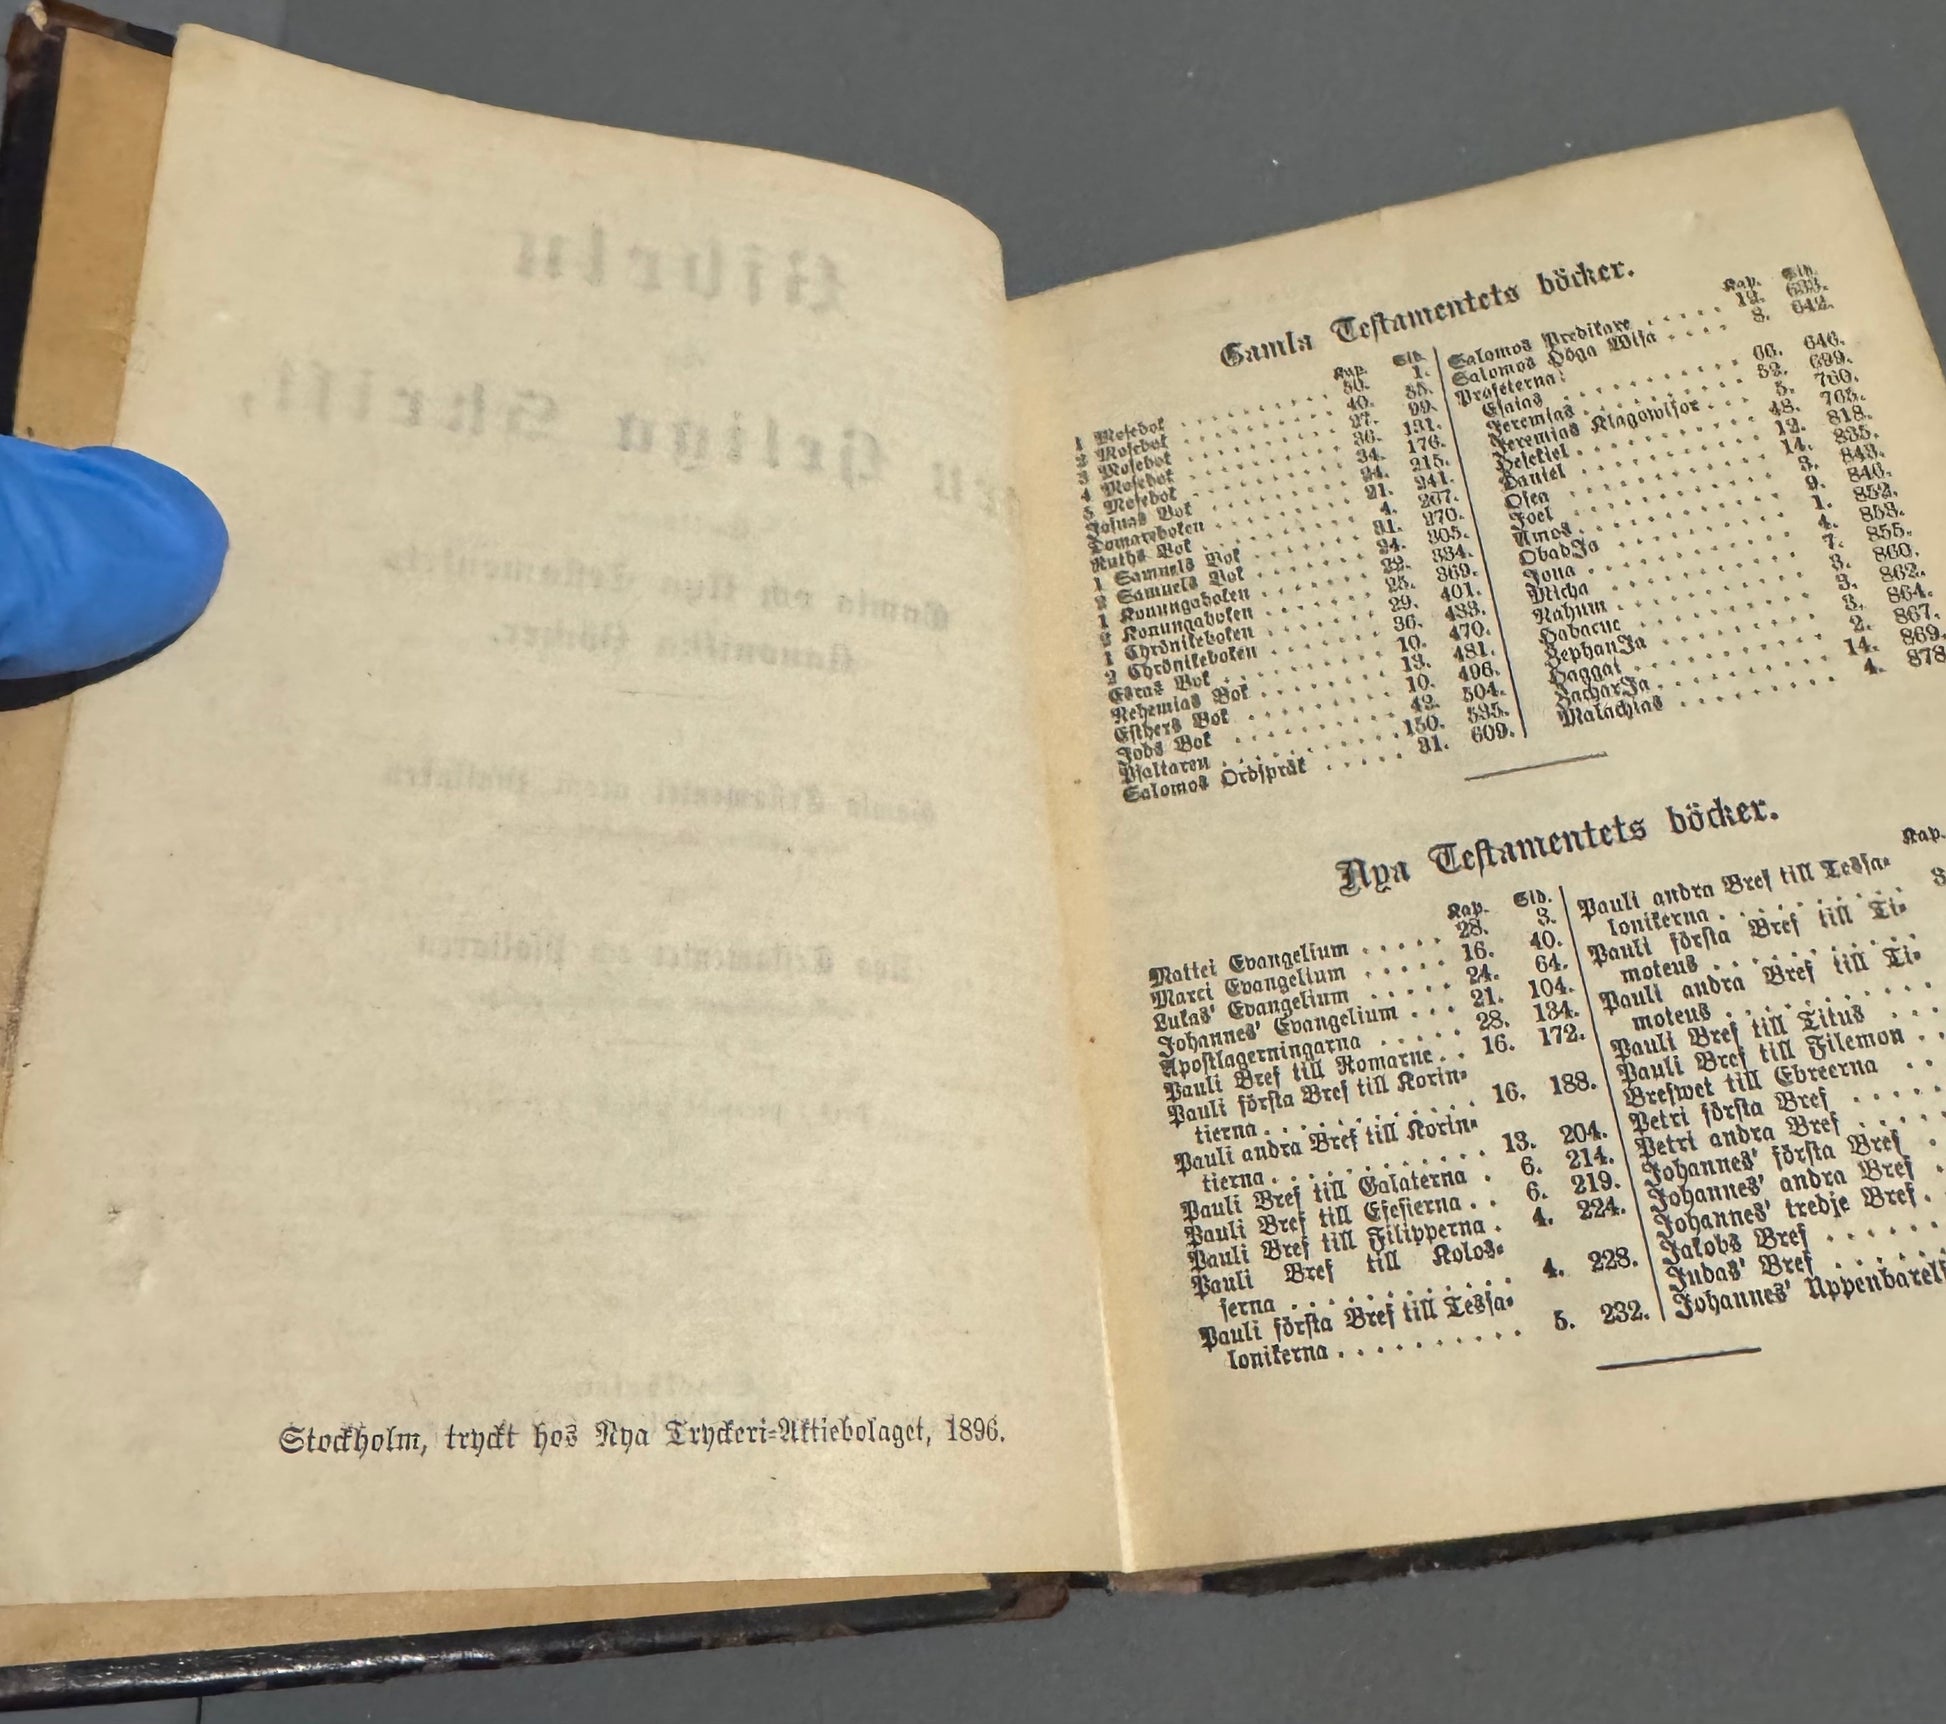 Stockholm, tryckt hos Nya Tryckeri-Aktiebolaget, 1896.
Gamla Testamentets böcker.
Kap. Sid.
1 Mosebok . . . 50. 1.
2 Mosebok . . . 40. 55.
3 Mosebok . . . 27. 99.
4 Mosebok . . . 36. 131.
5 Mosebok . . . 34. 176.
Josuas Bok . . . 24. 215.
Domareboken . . . 21. 241.
Ruths Bok . . . 4. 267.
1 Samuels Bok . . . 31. 270.
2 Samuels Bok . . . 24. 305.
1 Konungaboken . . . 22. 334.
2 Konungaboken . . . 25. 369.
1 Chrönikeboken . . . 29. 401.
2 Chrönikeboken . . . 36. 433.
Esras Bok . . . 10. 470.
Nehemias Bok . . . 13. 481.
Esthers Bok . . . 10. 496.
Jobs Bok . . . 42. 504.
Psaltaren . . . 150. 535.
Salomos Ordspråk . . . 31. 609.
Kap. Sid.
Salomos Predikare . . . 12. 633.
Salomos Höga Wisa . . . 8. 642.
Profeterna:
Esaias . . . 66. 646.
Jeremias . . . 52. 699.
Jeremias Klagowisor . . . 5. 760.
Hesekiel . . . 48. 765.
Daniel . . . 12. 818.
Osea . . . 14. 835.
Joel . . . 3. 843.
Amos . . . 9. 846.
ObadJa . . . 1. 852.
Jona . . . 4. 853.
Micha . . . 7. 855.
Nahum . . . 3. 860.
Habacuc . . . 3. 862.
ZephanJa . . . 3. 864.
Haggai . . . 2. 867.
ZacharJa . . . 14. 869.
Malachias . . . 4. 878
Nya Testamentets böcker.
Kap. Sid.
Mattei Evangelium . . . 28. 3.
Marci Evangelium . . . 16. 40.
Lukas' Evangelium . . . 24. 64.
Johannes' Evangelium . . . 21. 104.
Apostlagerningarna . . . 28. 134.
Pauli Bref till Romarne . . 16. 172.
Pauli första Bref till Korin-
tierna . . . 16. 188.
Pauli andra Bref till Korin-
tierna . . . 13. 204.
Pauli Bref till Galaterna . 6. 214.
Pauli Bref till Efesierna . . 6. 219.
Pauli Bref till Filipperna . 4. 224.
Pauli Bref till Kolos-
serna . . . 4. 228.
Pauli första Bref till Tessa-
lonikerna . . . 5. 232.
Kap.
Pauli andra Bref till Tessa-
lonikerna . . . 3
Pauli första Bref till Ti-
moteus . . .
Pauli andra Bref till Ti-
moteus . . .
Pauli Bref till Titus . . .
Pauli Bref till Filemon . .
Brefwet till Ebreerna . .
Petri första Bref . . .
Petri andra Bref . . .
Johannes' första Bref .
Johannes' andra Bref .
Johannes' tredje Bref .
Jakobs Bref . . .
Judas' Bref . . .
Johannes' Uppenbarels